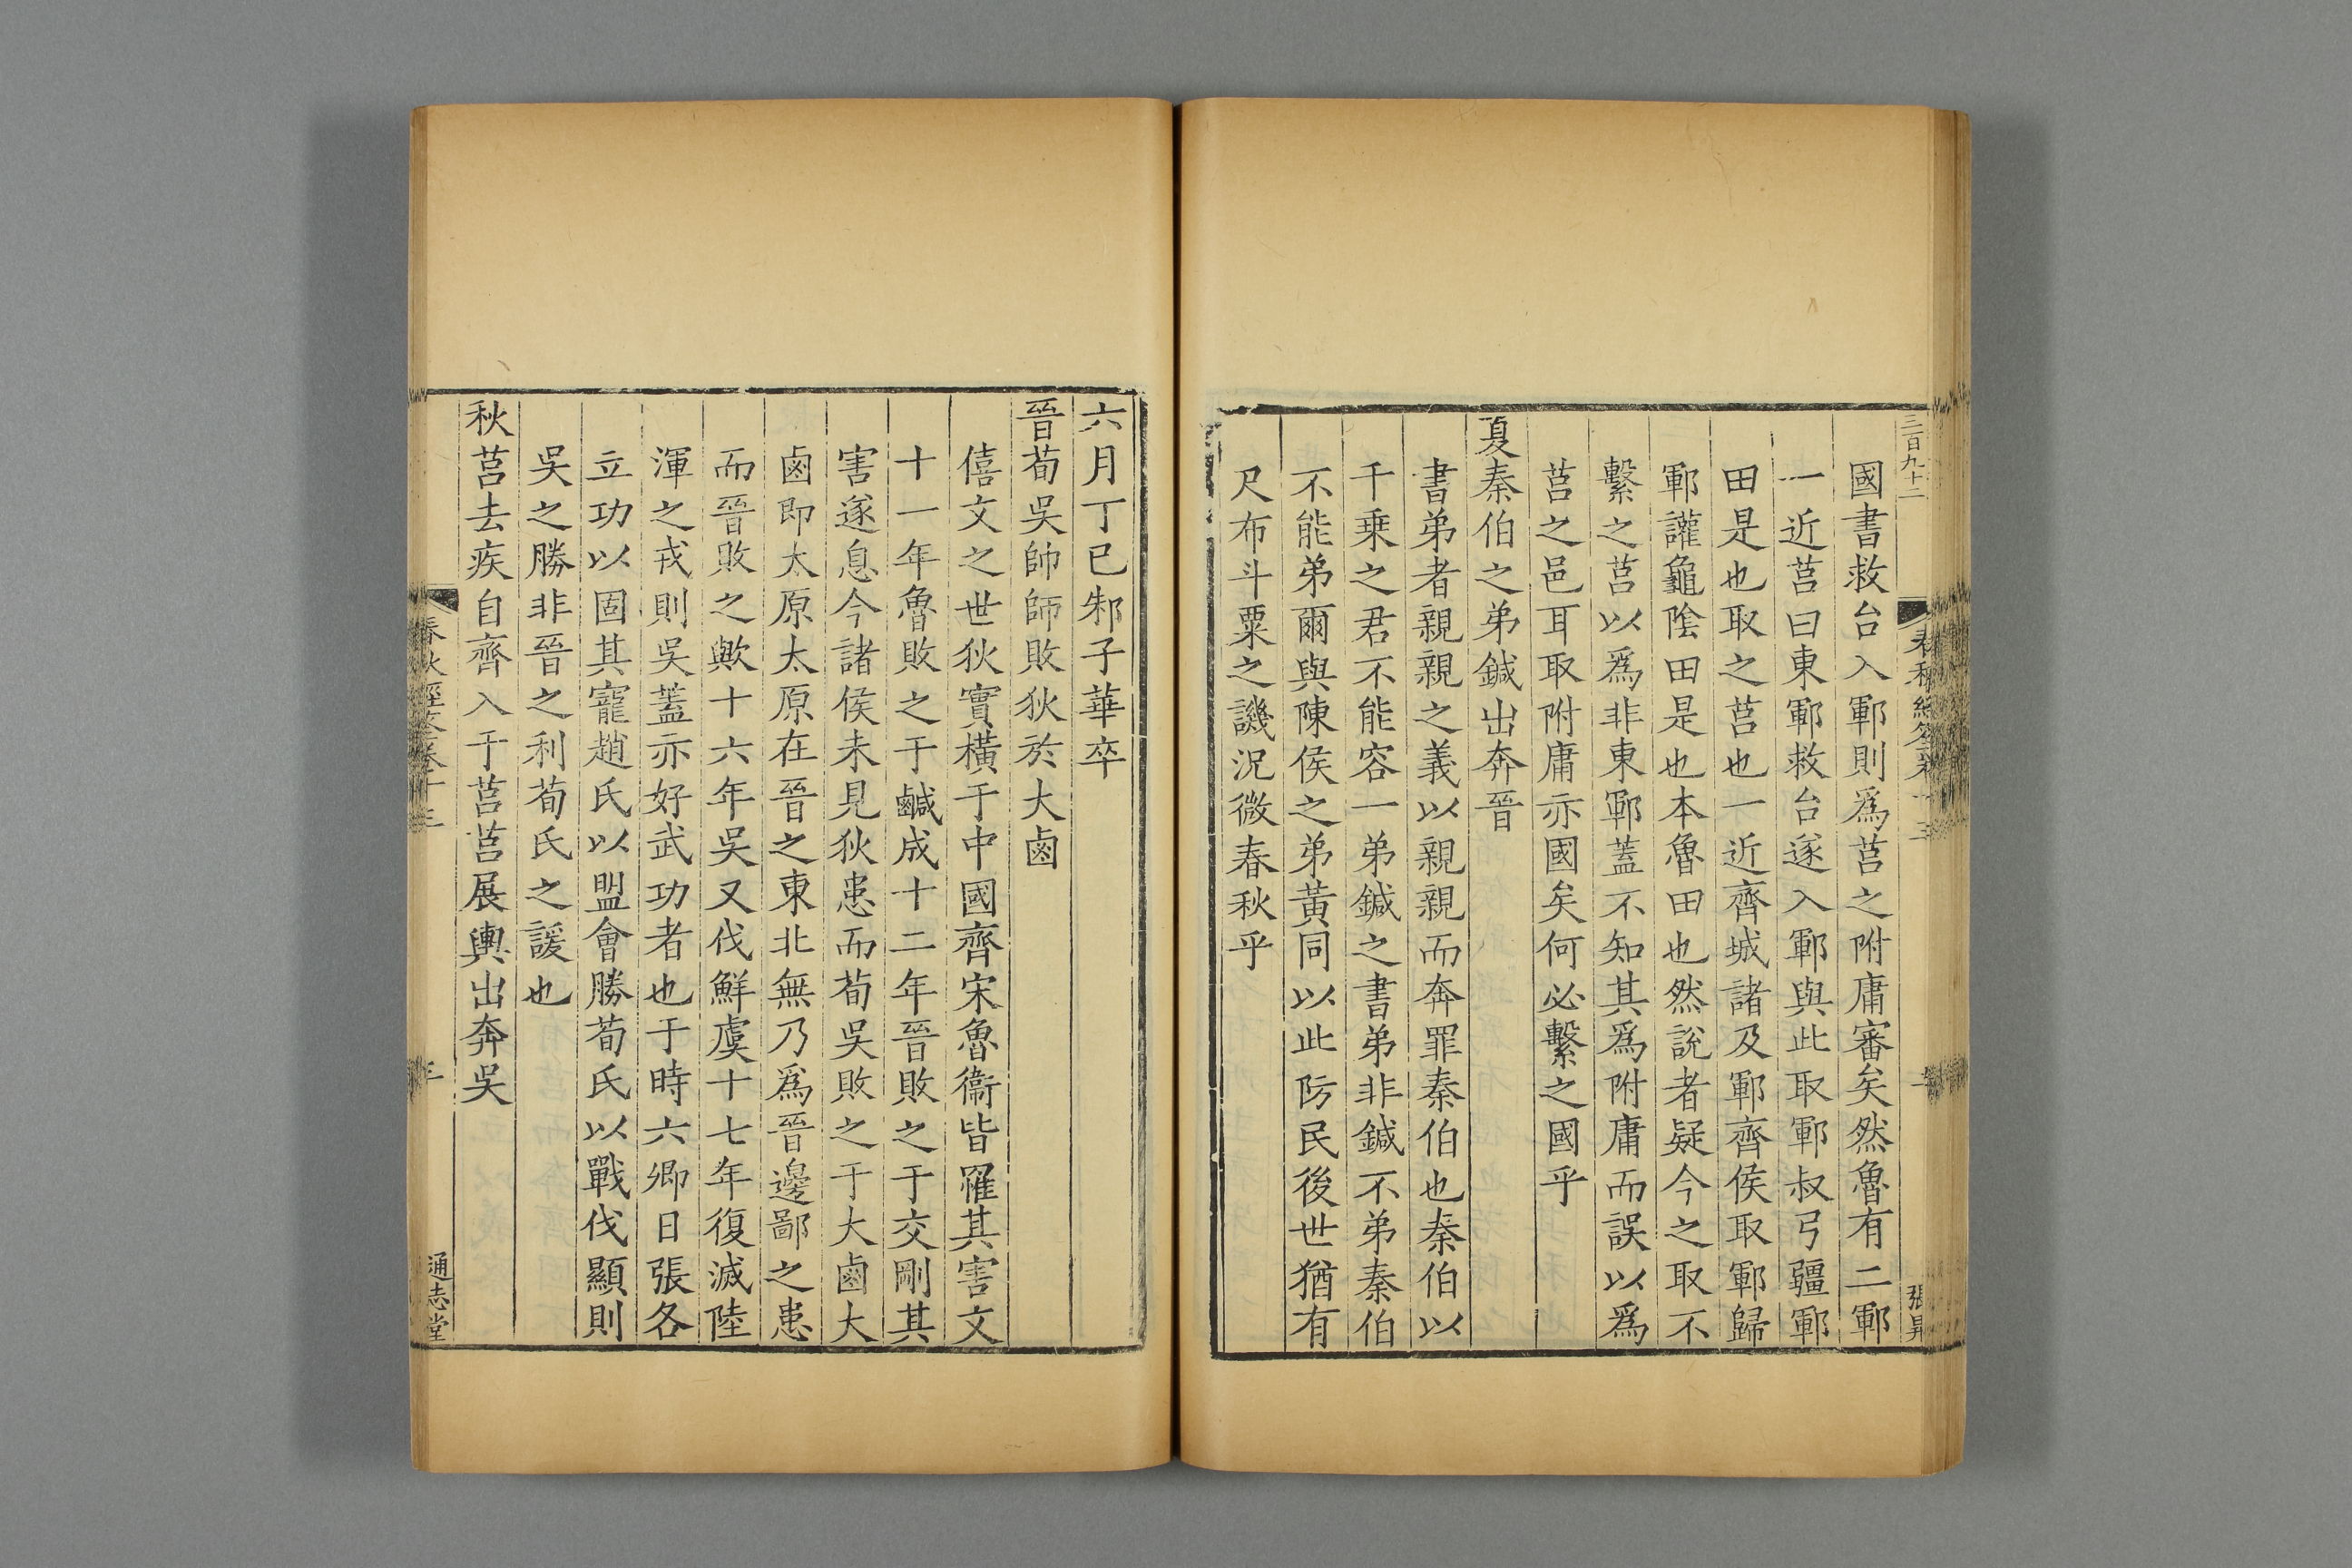 三百九十二
張昇
國書救台入鄆則爲莒之附庸審矣然魯有二鄆
一近莒曰東鄆救台遂入鄆與此取鄆叔弓疆鄆
田是也取之莒也一近齊城諸及鄆齊侯取鄆歸
鄆讙龜陰田是也本魯田也然說者疑今之取不
繫之莒以爲非東鄆蓋不知其爲附庸而誤以爲
莒之邑耳取附庸亦國矣何必繫之國乎
夏秦伯之弟鍼出奔晉
書弟者親親之義以親親而奔罪秦伯也秦伯以
千乗之君不能容一弟鍼之書弟非鍼不弟秦伯
不能弟爾與陳侯之弟黃同以此防民後世猶有
尺布斗粟之譏況微春秋乎
六月丁巳邾子華卒
晉荀吳帥師敗狄於大鹵
僖文之世狄實橫于中國齊宋魯衞皆罹其害文
十一年魯敗之于鹹成十二年晉敗之于交剛其
害遂息今諸侯未見狄患而荀吳敗之于大鹵大
鹵即太原太原在晉之東北無乃爲晉邊鄙之患
而晉敗之歟十六年吳又伐鮮虞十七年復滅陸
渾之戎則吳蓋亦好武功者也于時六卿日張各
立功以固其寵趙氏以盟會勝荀氏以戰伐顯則
吳之勝非晉之利荀氏之諼也
秋莒去疾自齊入于莒莒展輿出奔吳
春秋經筌卷十三
三
通志堂